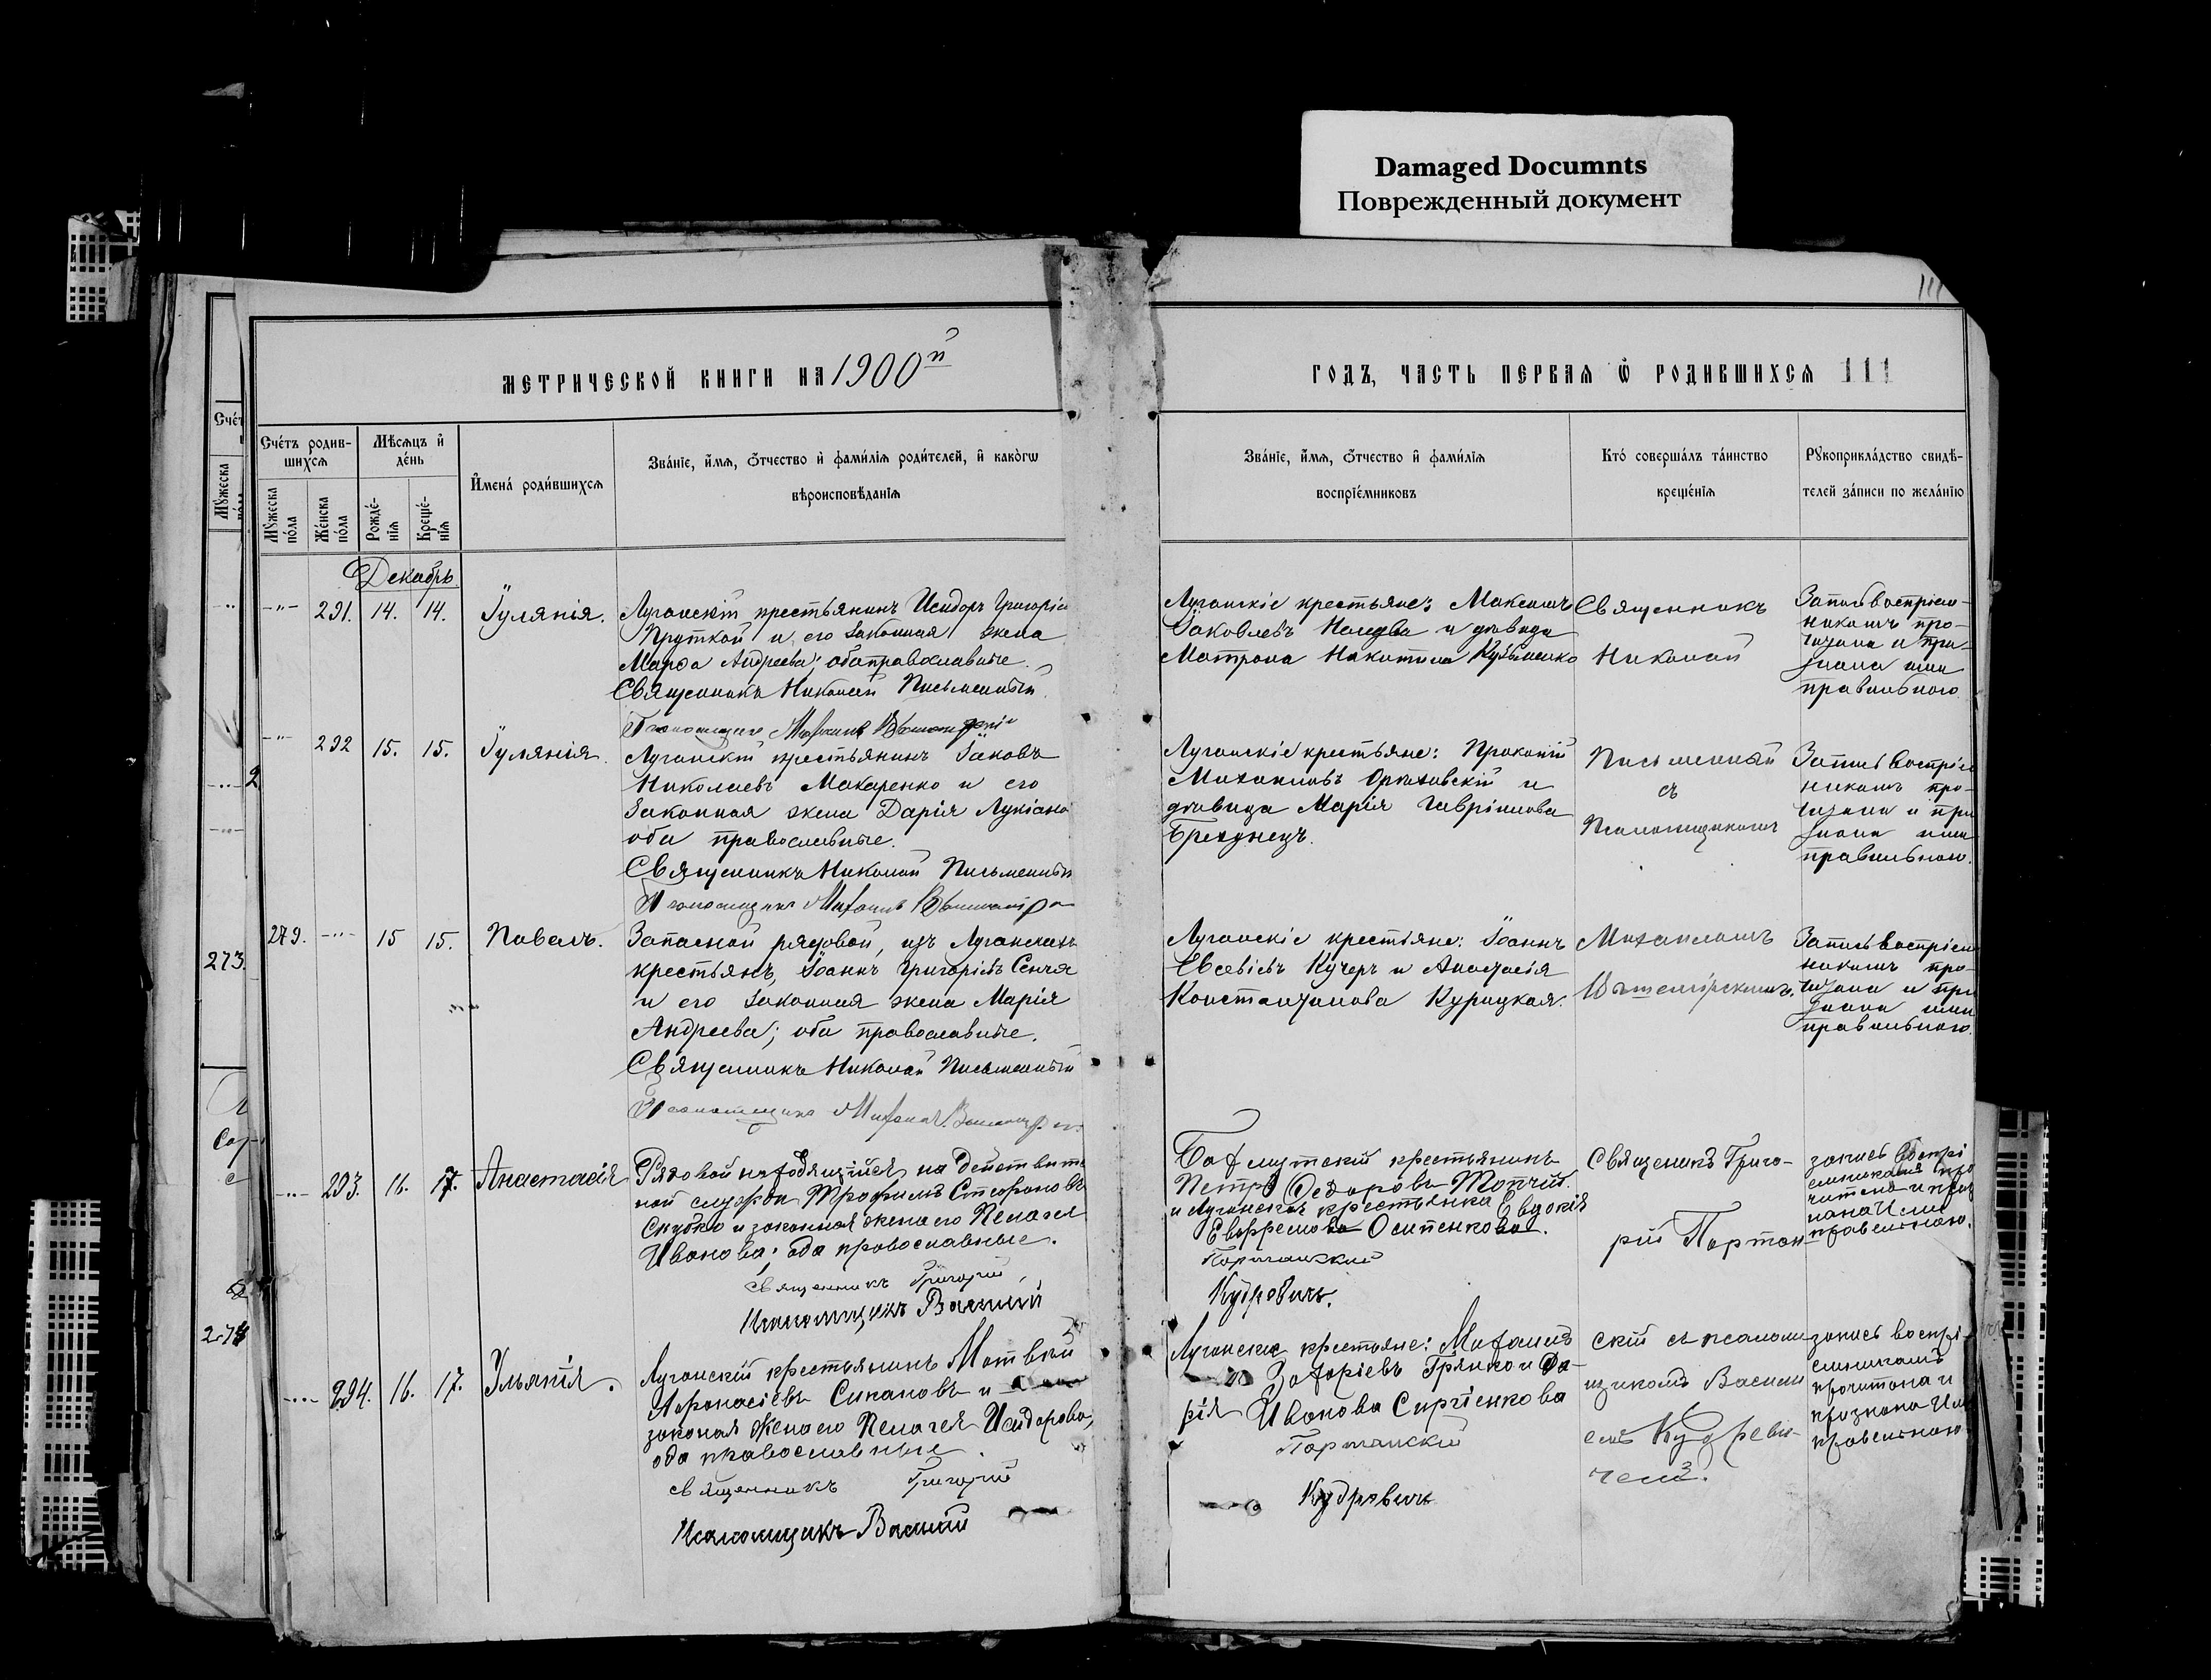 Damaged Documnts
Поврежденный документ
111
МЕТРИЧЕСКОЙ КНИГИ НА 1900й
ГОДЪ, ЧАСТЬ ПЕРВАЯ Ѿ РОДИВШИХСЯ 111
Сче́тъ родив-
шихся
Мѣсяцъ и҆
де́нь
Мꙋжеска
по́ла
Же́нска
по́ла
Рожде́-
нїя
Креще́-
нїя
И҆мена́ роди́вшихся
Зва́нїе, и҆́мя, ѻ҆́тчество и҆ фами́лїя роди́телей, и҆ како́гѡ
вѣроисповѣ́данїя
Зва́нїе, и҆́мя, ѻ҆́тчество и҆ фами́лїя
воспрїе́мниковъ
Кто̀ соверша́лъ та́инство
креще́нїя
Рꙋкоприкла́дство свидѣ́-
телей за́писи по жела́нїю
Декабрь
-"- 291. 14. 14. Іулянія.
Луганскій крестьянинъ Исидоръ Григоріе
Пруткой и его законная жена
Марѳа Андреева; оба православные.
Священникъ Николай Письменный.
Псаломщикъ Михаилъ
Луганскіе крестьяне: Максимъ
Іаковлевъ и дѣвица
Матрона Никитина Кузьменко
Священникъ
Николай
Запись воспріем-
никамъ про-
читана и при-
знана ими
правильною.
-"- 292 15. 15. Іулянія.
Луганскій крестьянинъ Іаковъ
Николаевъ Макаренко и его
законная жена Дарія Лукіано
оба православные.
Священникъ Николай Письменный
Псаломщикъ Михаилъ
Луганскіе крестьяне: Прокопій
Михаиловъ Ореховскій и
дѣвица Марія Гавріилова
Брехунецъ.
Письменный
съ
Псаломщикомъ
Запись воспріем
никамъ про-
читана и при
знана ими
правильною.
279. -"- 15 15. Павелъ.
Запасной рядовой, изъ Луганскихъ
крестьянъ, Іоаннъ Григоріевъ Сенчя
и его законная жена Марія
Андреева; оба православные.
Священникъ Николай Письменный
Псаломщикъ Михаилъ
Луганскіе крестьяне: Іоаннъ
Евсевіевъ Кучеръ и Анастасія
Константинова Курицкая.
Михаиломъ
Вышемірскимъ.
Запись воспріем
никамъ про-
читана и при
знана ими
правильною.
-"- 293. 16. 17. Анастасія
Рядовой находящійся на действите
ной службѣ Трофимъ Стефановъ
Скубко и законная жена его Пелагея
Иванова; оба православные.
Священникъ Григорій
Псаломщикъ Василій
Бахмутскій крестьянинъ
Петръ Ѳедоровъ Топчій.
и Луганская крестьянка Евдокія
Евфремова Осипенкова.
Портянскій
Кудревичъ.
Священикъ Григо-
рій Портян-
запись воспрі
емникамъ про
читана и приз
нана ими
правильною.
-"- 294. 16. 17. Ульянія.
Луганскій крестьянинъ Матвѣй
Афонасіевъ Силановъ и
законая жена его Пелагея Исидорова,
оба православные.
священникъ Григорій
Псаломщикъ Василій
Луганскіе крестьяне: Михаилъ
Захаріевъ Грянко и Да-
рія Иванова Сиргіенкова
Портянскій
Кудревичъ
скій съ псалом
щикомъ Васили
емъ Кудреви-
чемъ.
запись воспрі-
емникамъ
прочитана и
признана ими
правильною
273.
274